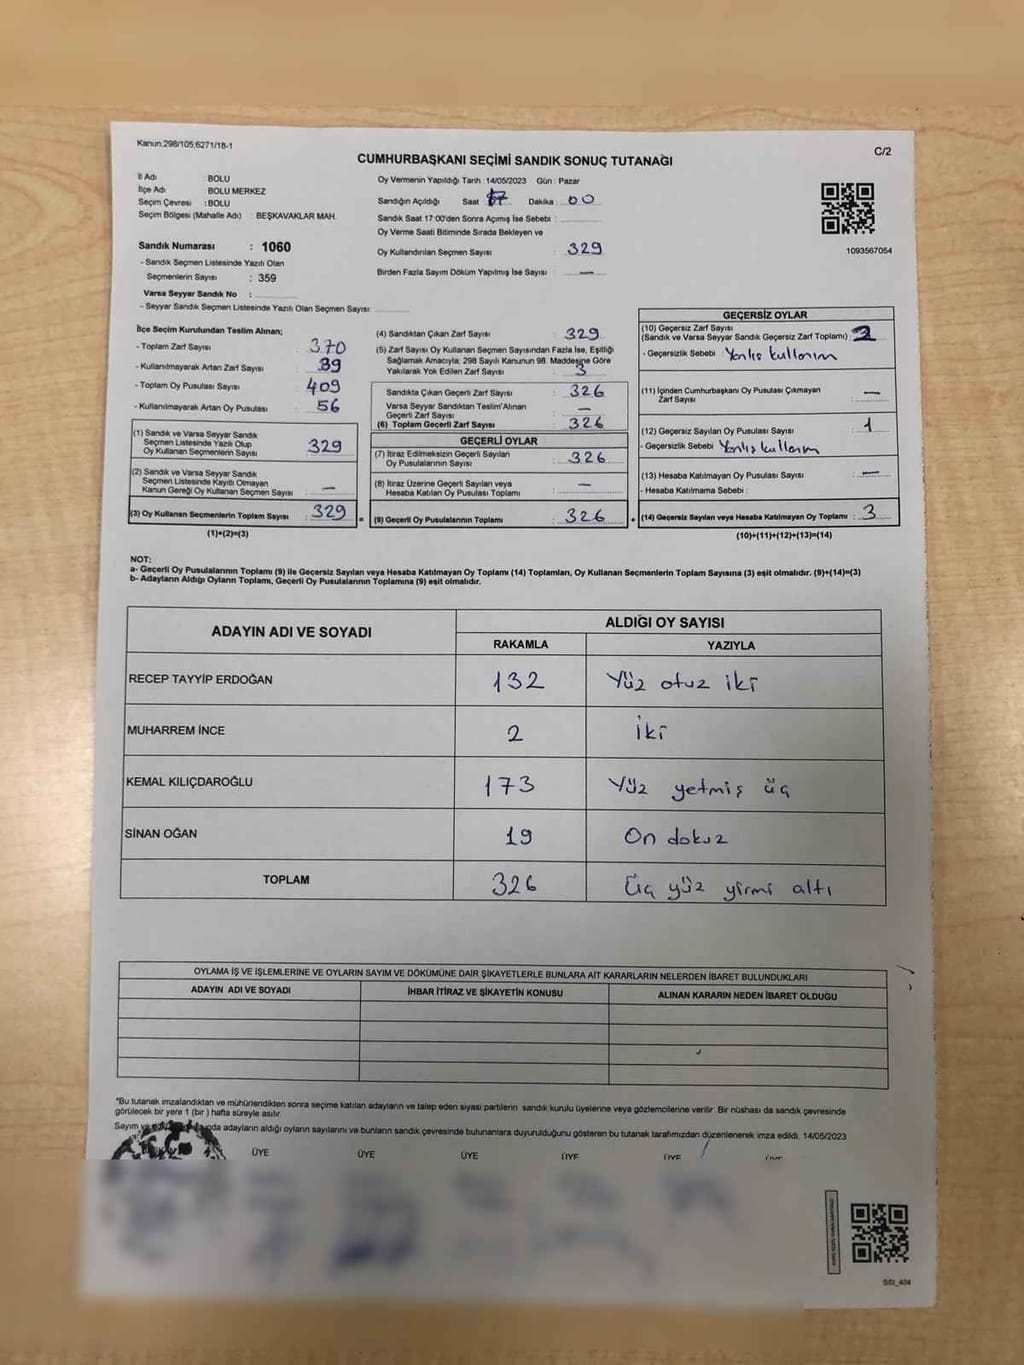 Kanun:298/105;6271/18-1
C/2
CUMHURBAŞKANI SEÇİMİ SANDIK SONUÇ TUTANAĞI
İl Adı : BOLU
İlçe Adı : BOLU MERKEZ
Seçim Çevresi : BOLU
Seçim Bölgesi (Mahalle Adı) BEŞKAVAKLAR MAH.
Sandık Numarası : 1060
- Sandık Seçmen Listesinde Yazılı Olan
Seçmenlerin Sayısı : 359
Varsa Seyyar Sandık No :
- Seyyar Sandık Seçmen Listesinde Yazılı Olan Seçmen Sayısı:
Oy Vermenin Yapıldığı Tarih : 14/05/2023 Gün : Pazar
Sandığın Açıldığı Saat 17 Dakika 00
Sandık Saat 17:00'den Sonra Açılmış İse Sebebi :
Oy Verme Saati Bitiminde Sırada Bekleyen ve
Oy Kullandırılan Seçmen Sayısı : 329
Birden Fazla Sayım Döküm Yapılmış İse Sayısı : —
1093567054
İlçe Seçim Kurulundan Teslim Alınan;
- Toplam Zarf Sayısı : 370
- Kullanılmayarak Artan Zarf Sayısı : 39
- Toplam Oy Pusulası Sayısı : 409
- Kullanılmayarak Artan Oy Pusulası : 56
(1) Sandık ve Varsa Seyyar Sandık
Seçmen Listesinde Yazılı Olup
Oy Kullanan Seçmenlerin Sayısı : 329
(2) Sandık ve Varsa Seyyar Sandık
Seçmen Listesinde Kayıtlı Olmayan
Kanun Gereği Oy Kullanan Seçmen Sayısı : —
(3) Oy Kullanan Seçmenlerin Toplam Sayısı : 329
(1)+(2)=(3)
=
(4) Sandıktan Çıkan Zarf Sayısı : 329
(5) Zarf Sayısı Oy Kullanan Seçmen Sayısından Fazla İse, Eşitliği
Sağlamak Amacıyla; 298 Sayılı Kanunun 98. Maddesine Göre
Yakılarak Yok Edilen Zarf Sayısı : 3
Sandıkta Çıkan Geçerli Zarf Sayısı : 326
Varsa Seyyar Sandıktan Teslim Alınan
Geçerli Zarf Sayısı : —
(6) Toplam Geçerli Zarf Sayısı : 326
GEÇERLİ OYLAR
(7) İtiraz Edilmeksizin Geçerli Sayılan
Oy Pusulalarının Sayısı : 326
(8) İtiraz Üzerine Geçerli Sayılan veya
Hesaba Katılan Oy Pusulası Toplamı : —
(9) Geçerli Oy Pusulalarının Toplamı : 326
+
GEÇERSİZ OYLAR
(10) Geçersiz Zarf Sayısı
(Sandık ve Varsa Seyyar Sandık Geçersiz Zarf Toplamı) : 2
- Geçersizlik Sebebi : Yanlış kullanım
(11) İçinden Cumhurbaşkanı Oy Pusulası Çıkmayan
Zarf Sayısı : —
(12) Geçersiz Sayılan Oy Pusulası Sayısı : 1
- Geçersizlik Sebebi : Yanlış kullanım
(13) Hesaba Katılmayan Oy Pusulası Sayısı : —
- Hesaba Katılmama Sebebi :
(14) Geçersiz Sayılan veya Hesaba Katılmayan Oy Toplamı : 3
(10)+(11)+(12)+(13)=(14)
NOT:
a- Geçerli Oy Pusulalarının Toplamı (9) ile Geçersiz Sayılan veya Hesaba Katılmayan Oy Toplamı (14) Toplamları, Oy Kullanan Seçmenlerin Toplam Sayısına (3) eşit olmalıdır. (9)+(14)=(3)
b- Adayların Aldığı Oyların Toplamı, Geçerli Oy Pusulalarının Toplamına (9) eşit olmalıdır.
ADAYIN ADI VE SOYADI
ALDIĞI OY SAYISI
RAKAMLA YAZIYLA
RECEP TAYYİP ERDOĞAN 132 Yüz otuz iki
MUHARREM İNCE 2 İki
KEMAL KILIÇDAROĞLU 173 Yüz yetmiş üç
SİNAN OĞAN 19 On dokuz
TOPLAM 326 Üç yüz yirmi altı
OYLAMA İŞ VE İŞLEMLERİNE VE OYLARIN SAYIM VE DÖKÜMÜNE DAİR ŞİKAYETLERLE BUNLARA AİT KARARLARIN NELERDEN İBARET BULUNDUKLARI
ADAYIN ADI VE SOYADI İHBAR İTİRAZ VE ŞİKAYETİN KONUSU ALINAN KARARIN NEDEN İBARET OLDUĞU
*Bu tutanak imzalandıktan ve mühürlendikten sonra seçime katılan adayların ve talep eden siyasi partilerin sandık kurulu üyelerine veya gözlemcilerine verilir. Bir nüshası da sandık çevresinde
görülecek bir yere 1 (bir) hafta süreyle asılır.
Sayım ve adayların aldığı oyların sayılarını ve bunların sandık çevresinde bulunanlara duyurulduğunu gösteren bu tutanak tarafımızdan düzenlenerek imza edildi. 14/05/2023
ÜYE ÜYE ÜYE ÜYE ÜYE
SSI_404